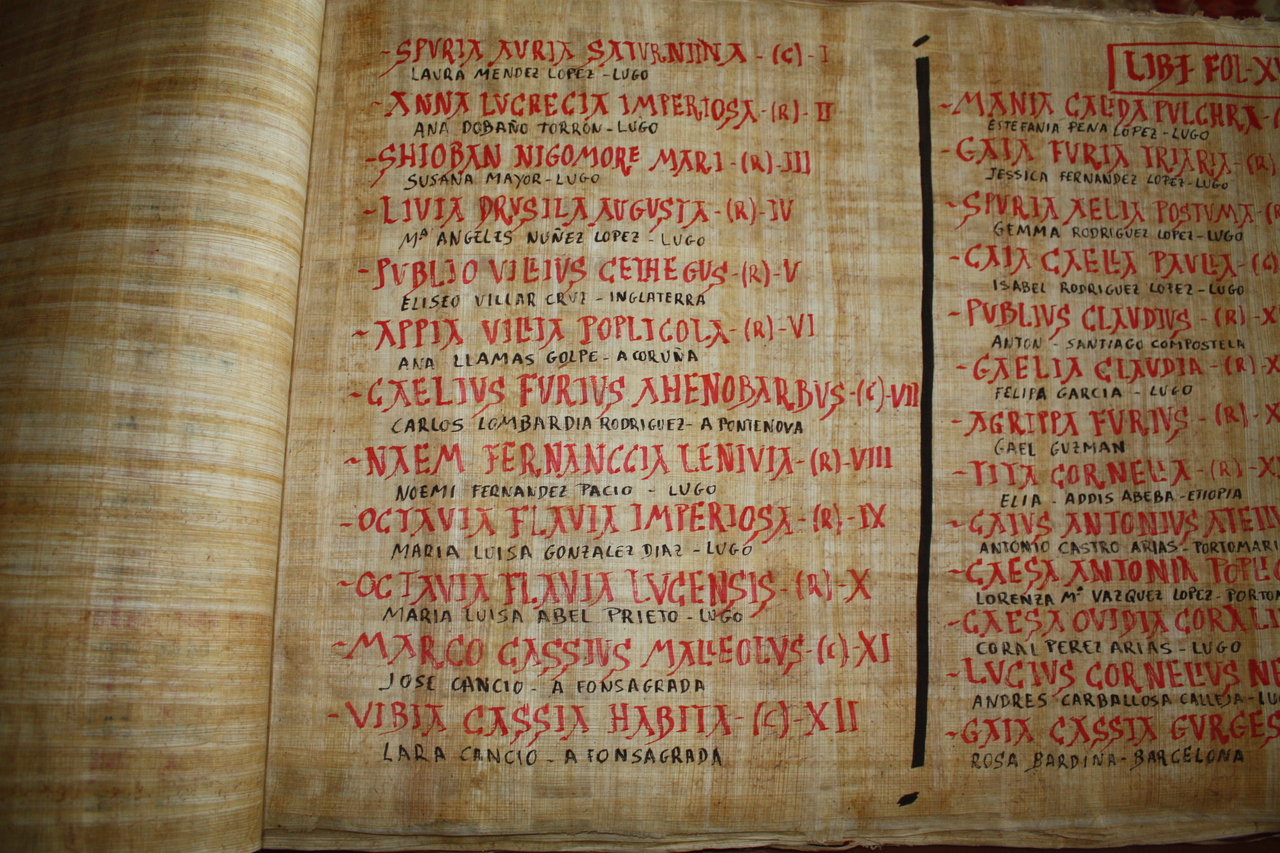 -SPVRIA AVRIA SATVRNINA-(C)-I
LAURA MENDEZ LOPEZ-LUGO
-ANNA LVCRECIA IMPERIOSA-(R)-II
ANA DOBAÑO TORRÓN-LUGO
-SHIOBAN NIGOMORE MARI-(R)-III
SUSANA MAYOR-LUGO
-LIVIA DRVSILA AUGUSTA-(R)-IV
Mª ANGELES NÚÑEZ LOPEZ-LUGO
-PVBLIO VILLIVS CETHEGUS-(R)-V
ELISEO VILLAR CRUZ-INGLATERRA
-APPIA VILLIA POPLICOLA-(R)-VI
ANA LLAMAS GOLPE-A CORUÑA
-CAELIVS FVRIVS AHENOBARBVS-(C)-VII
CARLOS LOMBARDIA RODRIGUEZ-A PONTENOVA
-NAEM FERNANCCIA LENIVIA-(R)-VIII
NOEMI FERNANDEZ PACIO-LUGO
-OCTAVIA FLAVIA IMPERIOSA-(R)-IX
MARIA LUISA GONZALEZ DIAZ-LUGO
-OCTAVIA FLAVIA LUCENSIS-(R)-X
MARIA LUISA ABEL PRIETO-LUGO
-MARCO CASSIVS MALLEOLVS-(C)-XI
JOSE CANCIO-A FONSAGRADA
-VIBIA CASSIA HABITA-(C)-XII
LARA CANCIO-A FONSAGRADA
LIB I FOL-XV
-MANIA CALIDA PULCHRA-
ESTEFANIA PENA LOPEZ-LUGO
-GAIA FVRIA TRIARIA-(R)
JESSICA FERNANDEZ LOPEZ-LUGO
-SPVRIA AELIA POSTVMA-
GEMMA RODRIGUEZ LOPEZ-LUGO
-CAIA CAELIA PAVLLA-(C)
ISABEL RODRIGUEZ LOPEZ-LUGO
-PVBLIUS CLAVDIVS-(R)-X
ANTON-SANTIAGO COMPOSTELA
-CAELIA CLAVDIA-(R)-X
FELIPA GARCIA-LUGO
-AGRIPPA FVRIVS-(R)-X
GAEL GUZMAN
-TITA CORNELIA-(R)-X
ELIA-ADDIS ABEBA-ETIOPIA
-GAIVS ANTONIVS
ANTONIO CASTRO ARIAS-PORTOMARI
-CAESA ANTONIA POPLIC
LORENZA Mª VAZQUEZ LOPEZ-PORTOM
-CAESA OVIDIA CORALI
CORAL PEREZ ARIAS-LUGO
-LUCIVS CORNELIUS NE
ANDRES CARBALLOSA CALLEJA-LU
-GAIA CASSIA GVRGES
ROSA BARDINA-BARCELONA